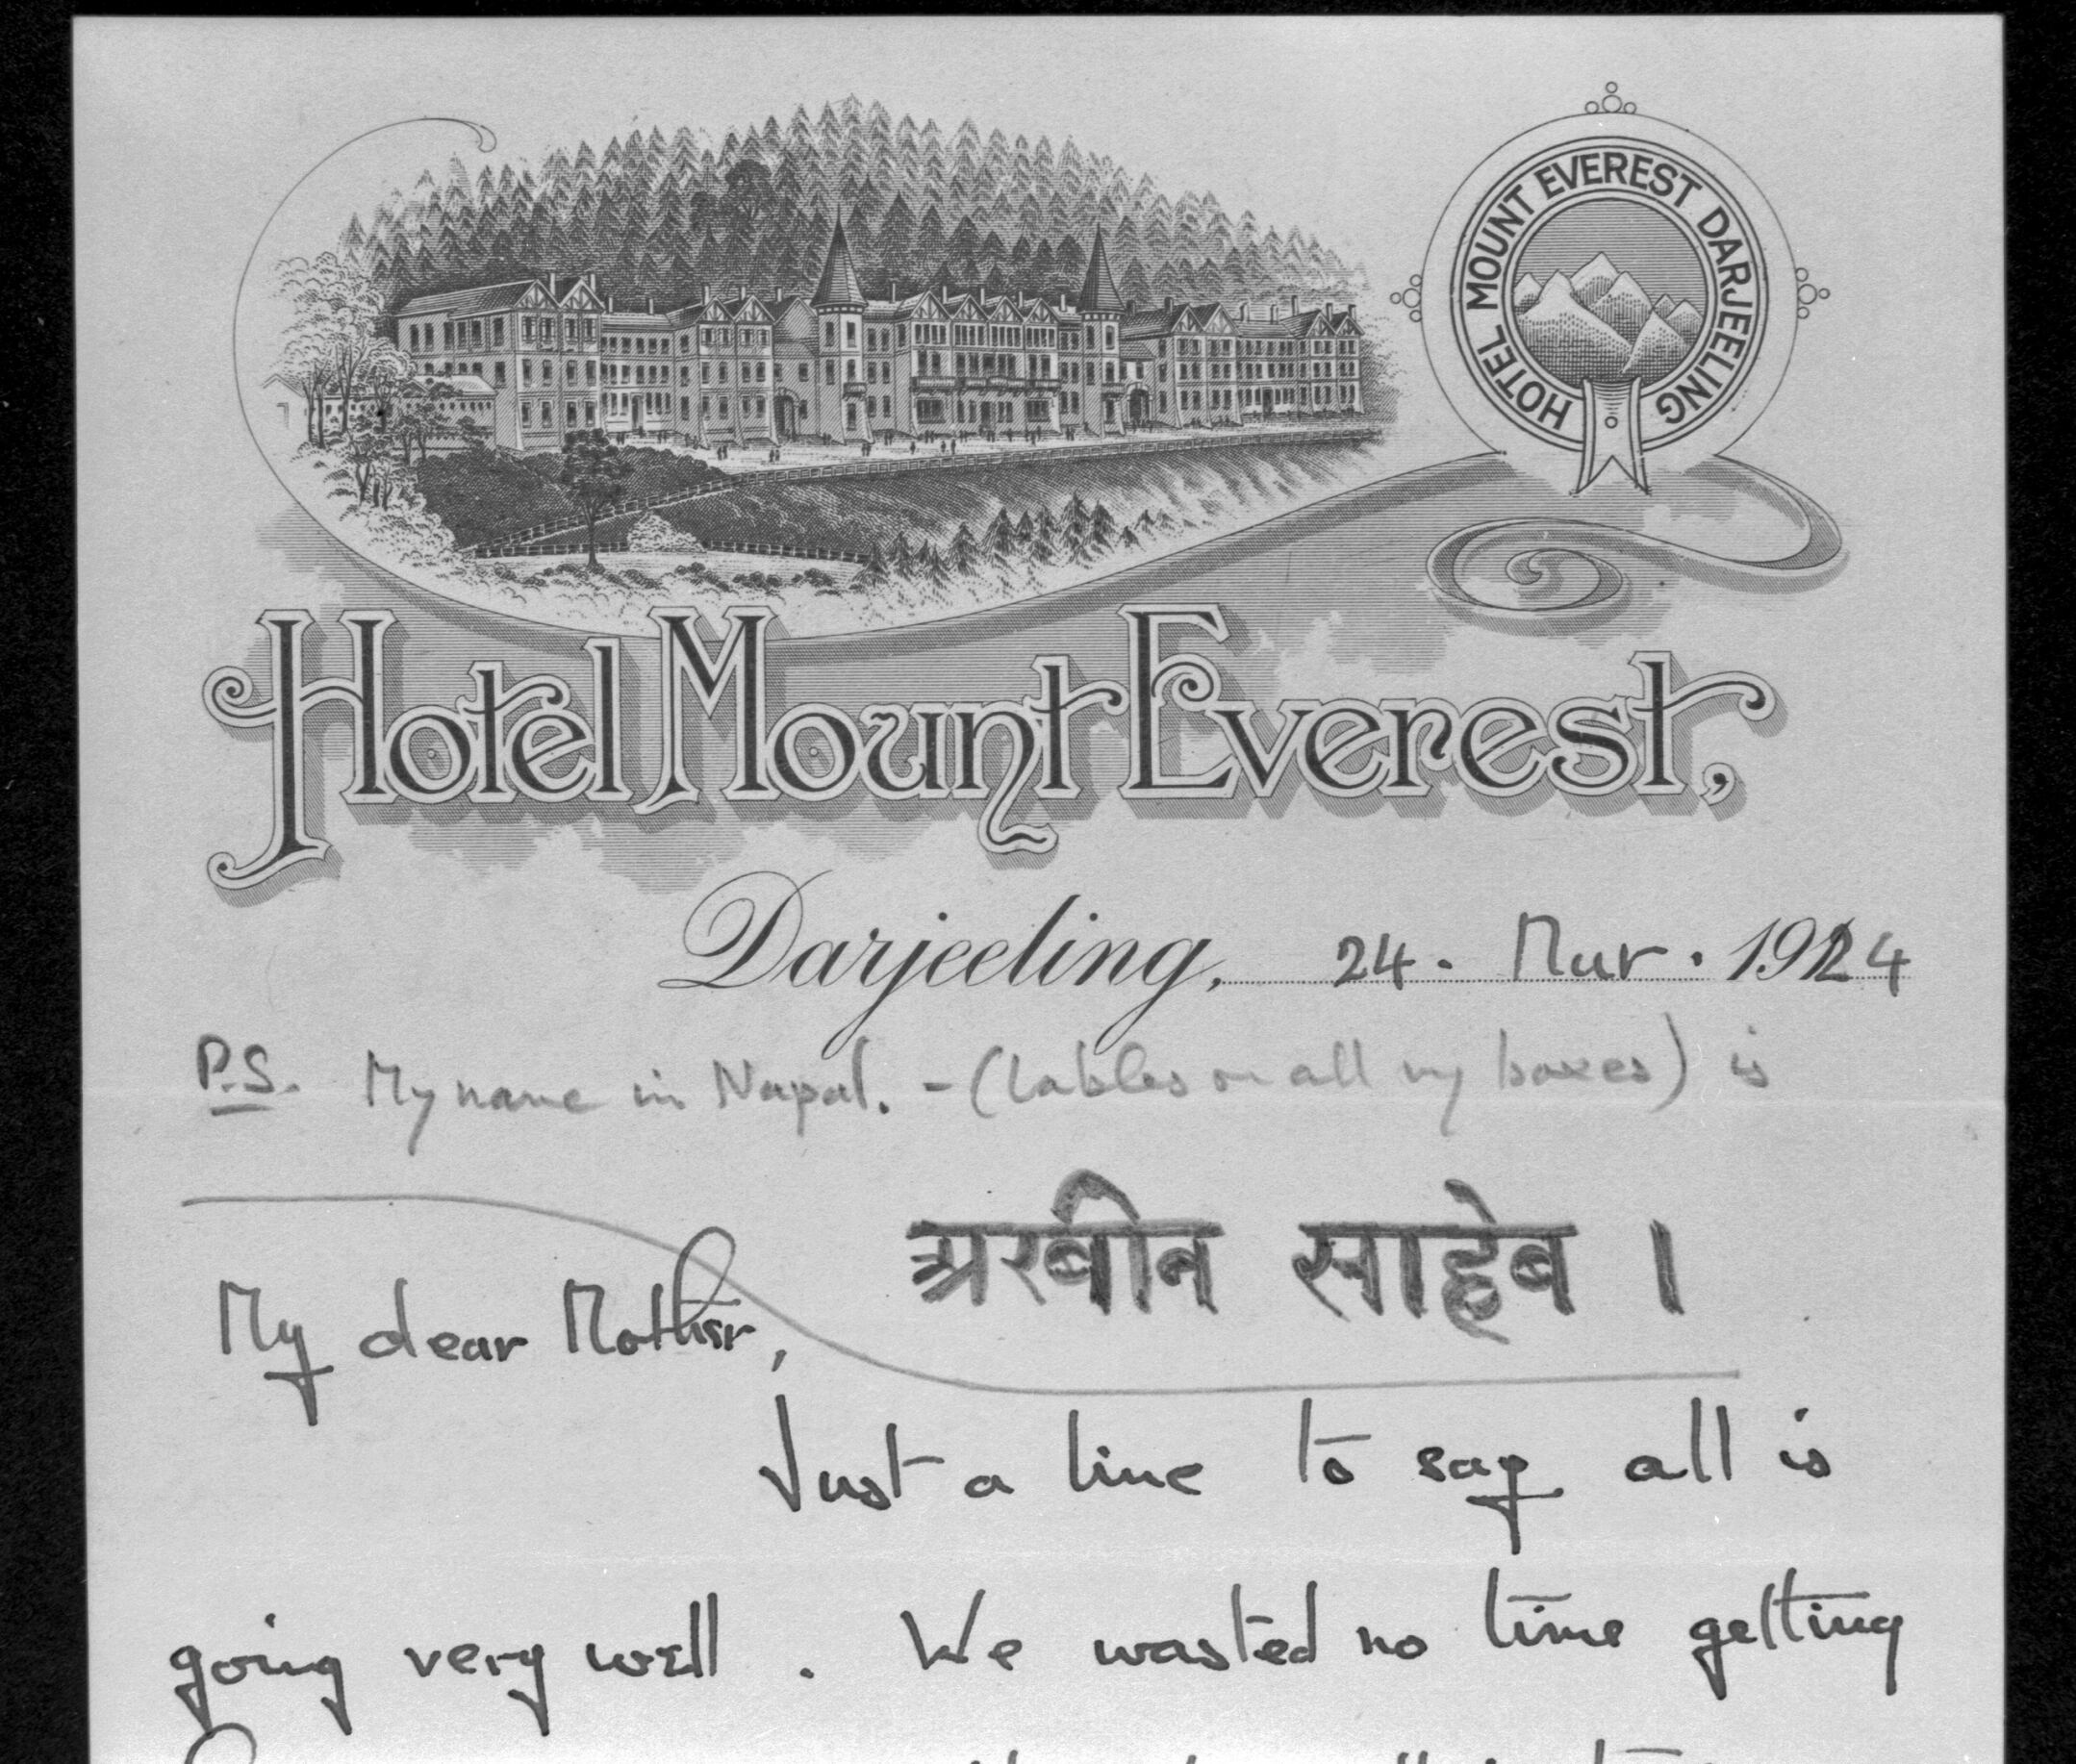 HOTEL MOUNT EVEREST DARJEELING
Hotel Mount Everest,
Darjeeling, 24. Mar. 1924
P.S. My name in Nepal. - (lables on all my boxes) is
अरवीन साहेब ।
My dear Mother,
Just a line to say all is
going very well. We wasted no time getting